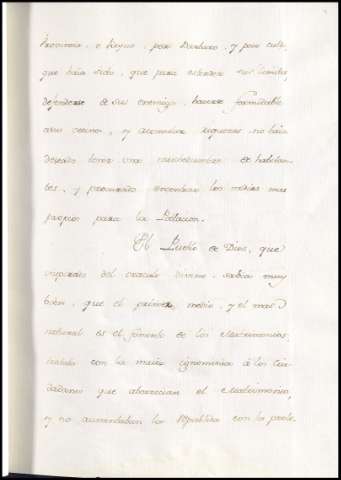 Provincia, o Reyno, por Barbaro, y poco culto
que haia sido, que para estender sus limites,
defenderse de sus enemigos, hacerse formidable
a sus vecinos, y acumular riquezas, no haia
deseado tener una muchedumbre de habitan-
tes, y procurado encontrar los medios mas
propios para la Poblacion.
El Pueblo de Dios, que
inspirado del oraculo divino, sabia muy
bien, que el primer medio, y el mas
natural es el fomento de los Matrimonios,
trataba con la maior ignominia á los Ciu-
dadanos que aborrecian el Matrimonio,
y no aumentaban la República con la prole.